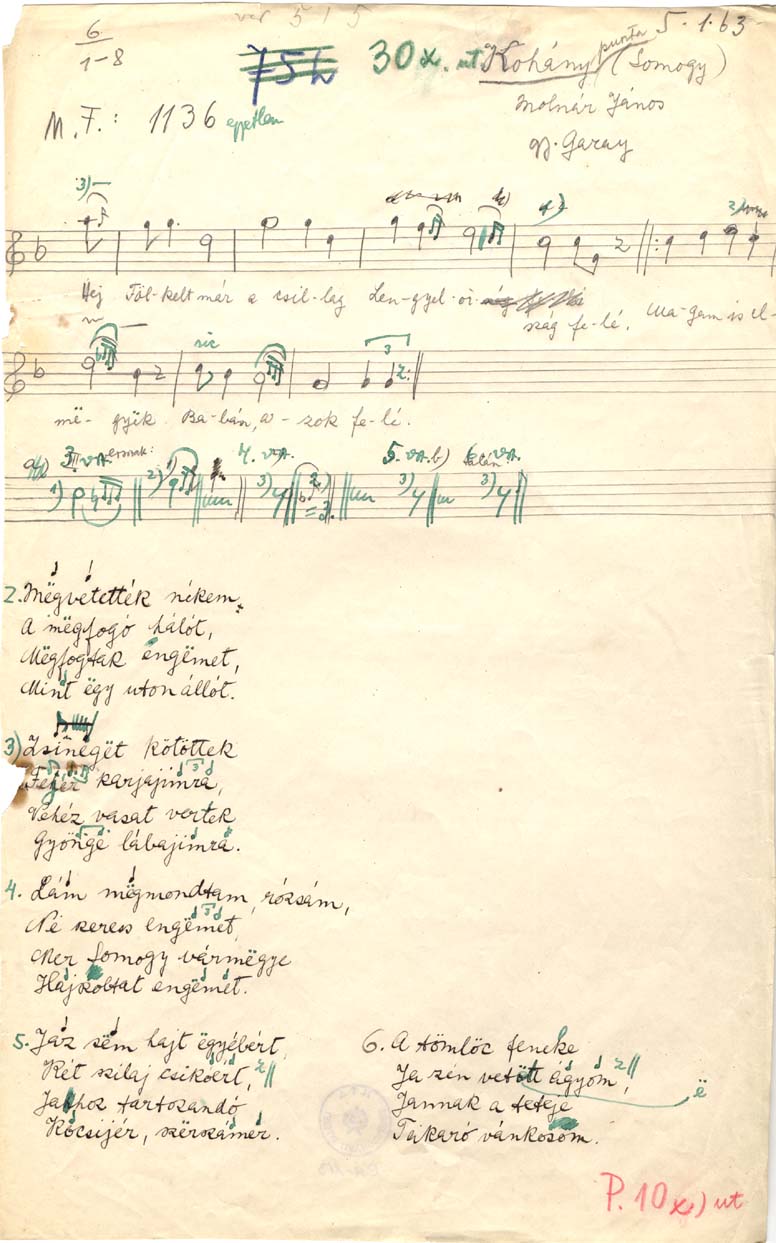 6
1-8
5 1 5
5.1.63
75h
30 x. ut Kohány puszta (Somogy)
Molnár János
gy. Garay
M. F.: 1136 egyetlen
Hej Föl-kelt már a csil-lag Len-gyel-or-
szág fe-lé. Ma-gam is el-
më-gyëk Ba-bán, a-zok fe-lé.
3. vsz. 4. vsz. 5. vsz. b) 6. vsz.
2. Mëgvetették nékem
A mëgfogó hálót,
Mëgfogtak engëmet,
Mint ëgy uton állót.
3) Zsinëgët kötöttek
Fehér karjajimra,
Nehéz vasat vertek
Gyönge lábajimra.
4. Lám mëgmondtam, rózsám,
Në keress engëmet,
Mer Somogy vármëgye
Hajkobtat engëmet.
5. Jaz sëm hajt ëgyébért,
Két szilaj csikóért,
Jahhoz tartozandó
Kocsijér, szërszámér.
6. A tömlöc feneke
Ja zén vetött ágyom,
ë
Jannak a teteje
Takaró vánkosom.
P. 10 x) ut